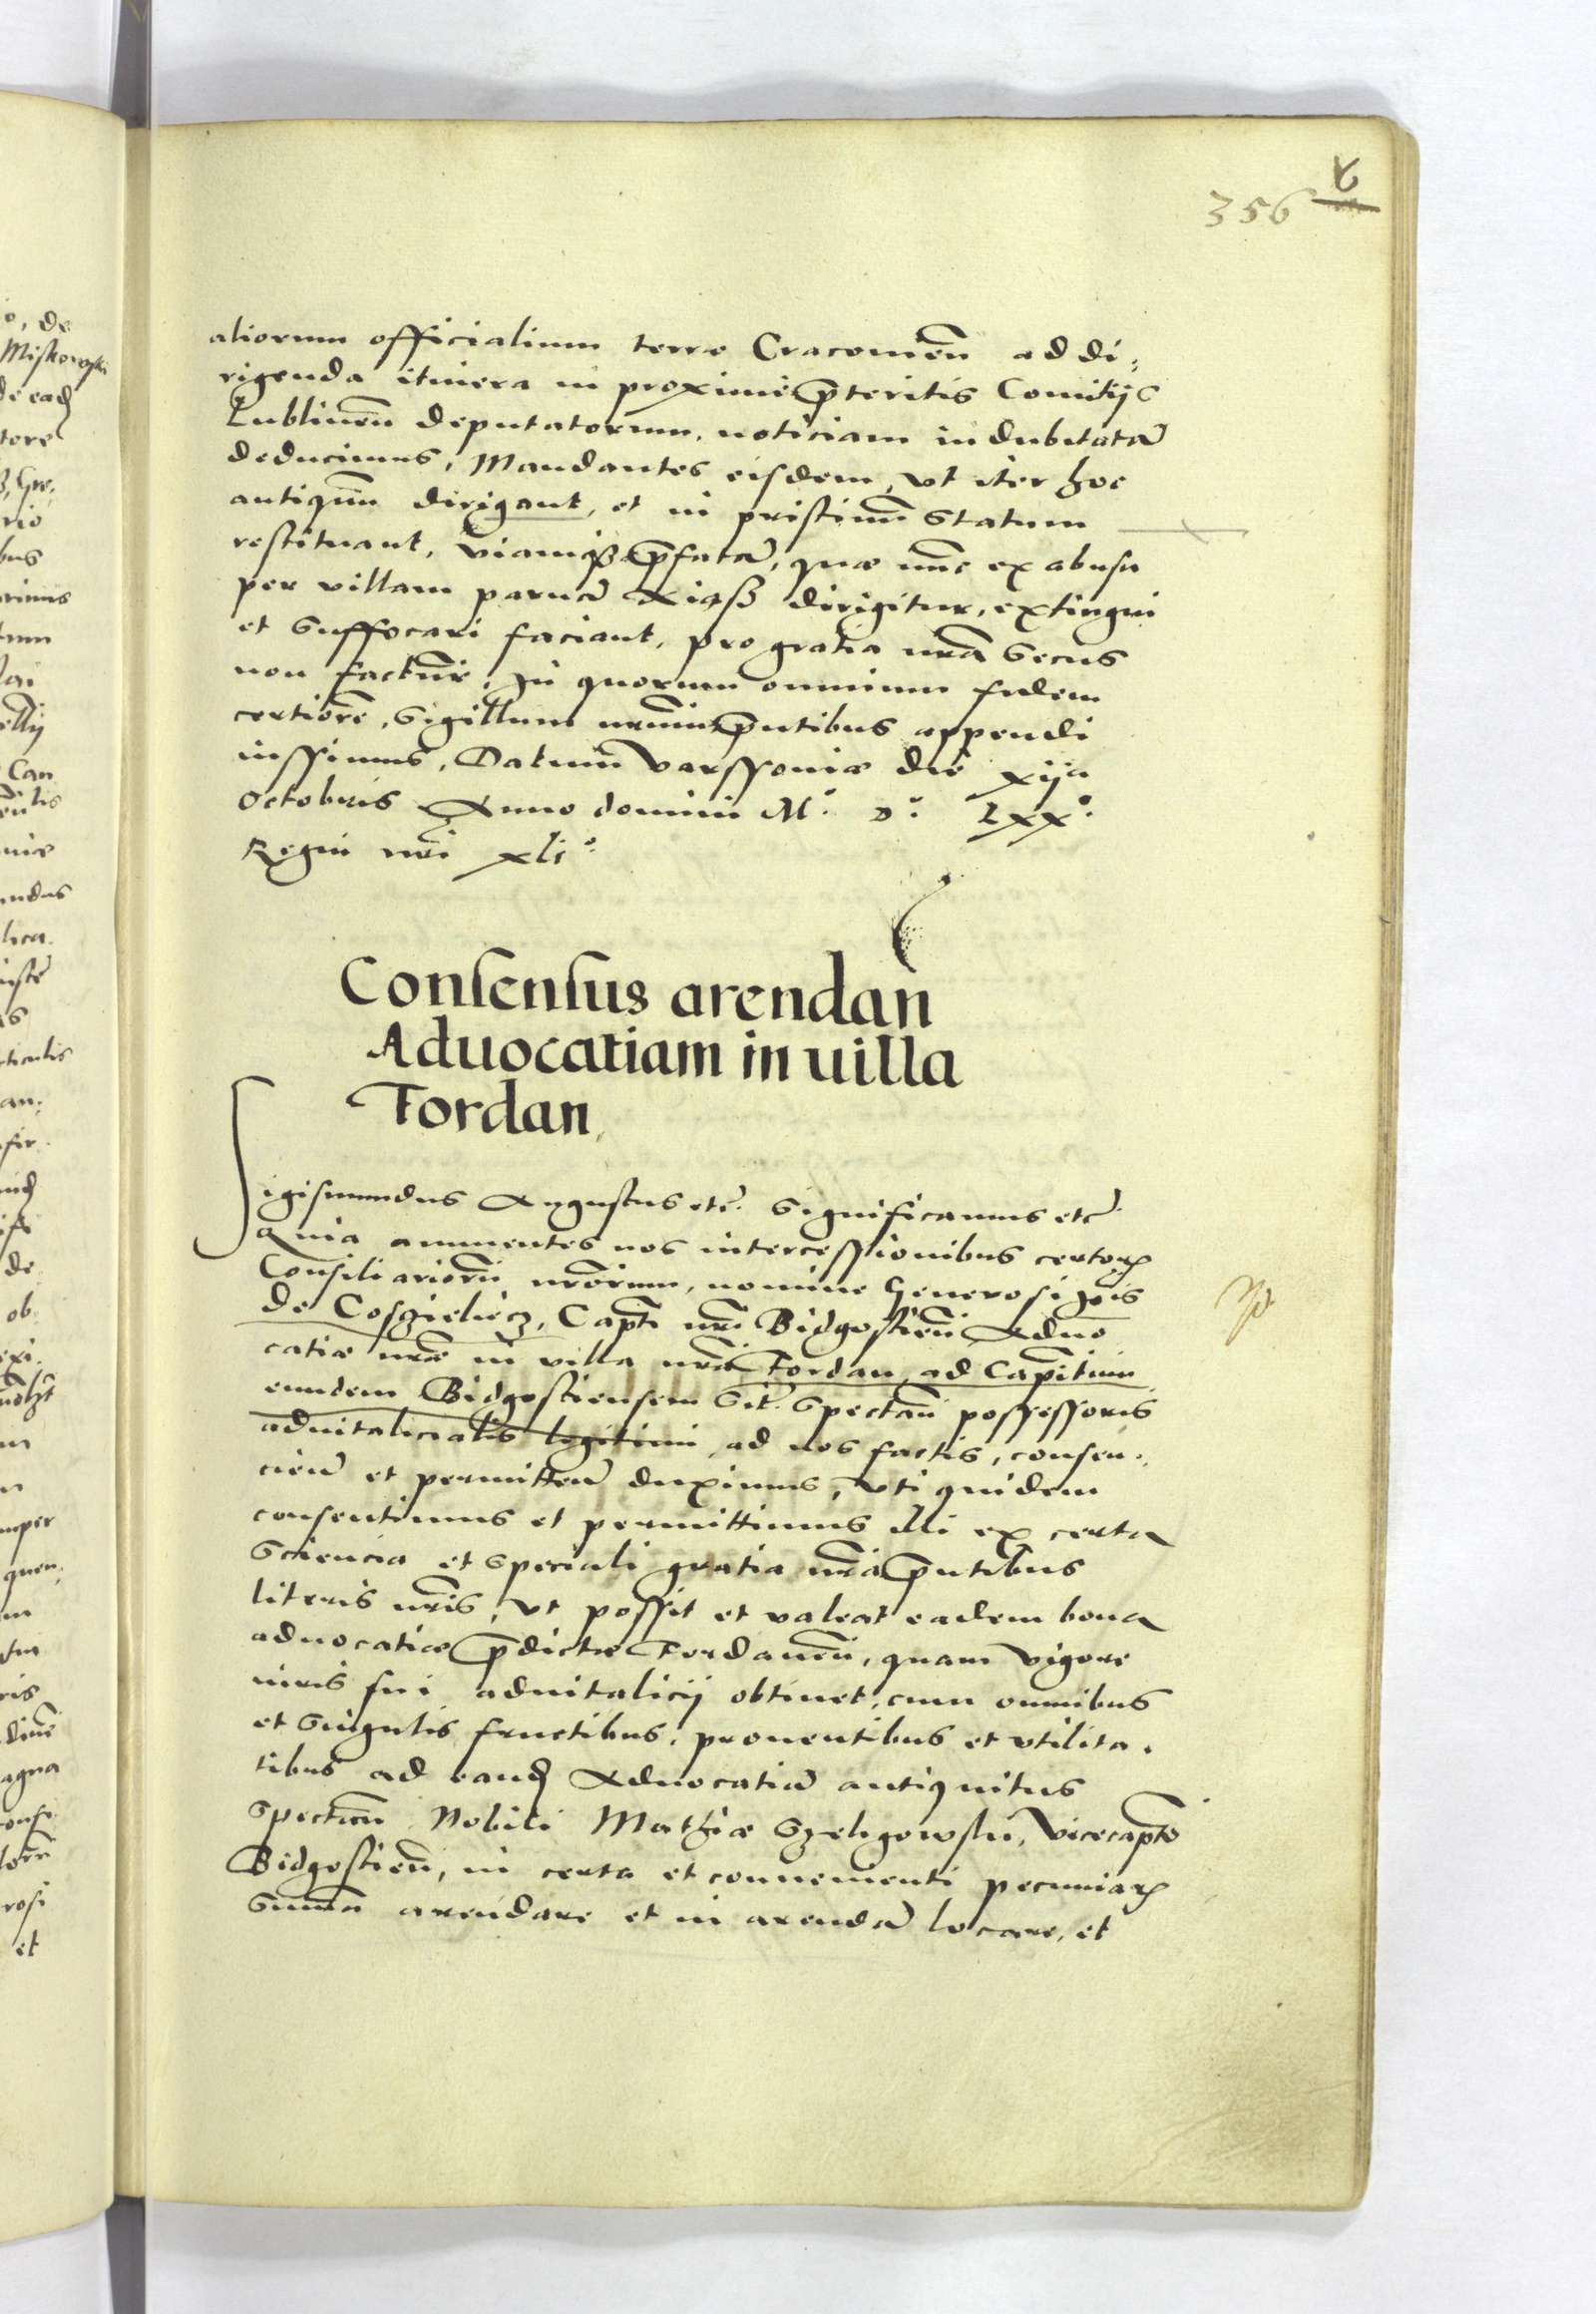 356
aliorum officialium terræ Cracouieñ ad di-
rigenda itinera in proximè p̃teritis Comitijs
Lublineñ deputatorum, noticiam indubitatã
deducimus, Mandantes eisdem, vt iter hoc
antiquũ dirigant, et in pristinũ statum
restituant, viamq3 p̃fatã, quæ nũc ex abusu
per villam paruã Xiąsz dirigitur, extingui
et suffocari faciant, pro gratia nr̃a secus
non factur̃. In quorum omnium fidem
certiorẽ, sigillum nr̃um p̃ntibus appendi
iussimus, Datum Varssoniæ die xija
Octobris Anno domini M° D° Lxx°
Regni nr̃i xli°
Consensus arendañ
Aduocatiam in uilla
Fordan
Sigismundus Augustus etc̃. Significamus etc̃.
Quia annuentes nos intercessionibus certorꝝ
Consiliariorũ nr̃orum, nomine Generosi Jõis
de Coszielecz, Capt̃i nr̃i Bidgostieñ Aduo
catiæ nr̃æ in villa nr̃a Fordan, ad Cap̃itum
eundem Bidgostiensem sit̃. spectañ possessoris
aduitalicialis legitimi, ad nos factis, consen-
cieñ et permitteñ duximus, vti quidem
consentimus et permittimus illi ex certa
sciencia et speciali gratia nr̃a p̃ntibus
literis nr̃is, vt possit et valeat eadem bona
aduocatiæ p̃dictæ Fordaneñ, quam vigore
iuris sui aduitalicij obtinet, cum omnibus
et singulis fructibus, prouentibus et vtilita-
tibus ad eand̃ Aduocatiã antiquitus
spectañ Nobili Mathiæ Szeligowski, Vicecapt̃o
Bidgostieñ, in certa et conuenienti pecuniarꝝ
sum̃a arendare et in arendã locare, et